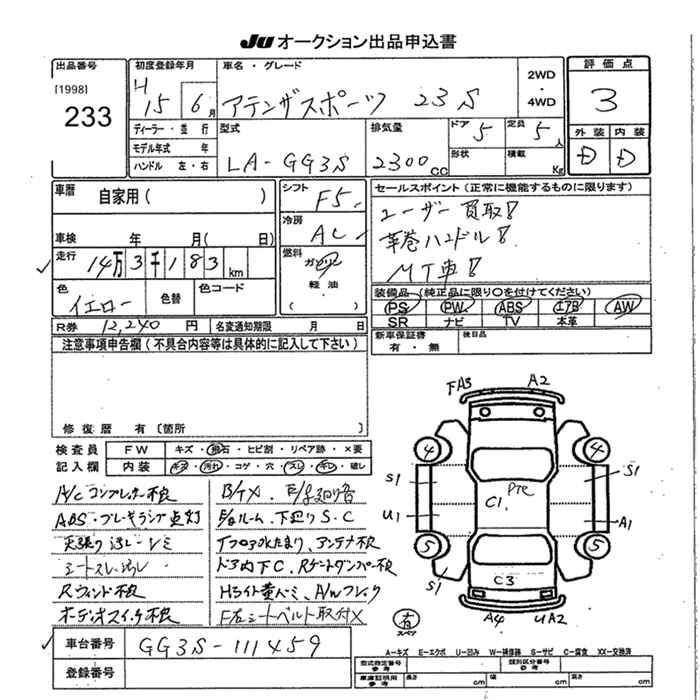 JU オークション出品申込書
出品番号
[1998]
233
初度登録年月
H 15 6月
車名・グレード
アテンザスポーツ 23S
2WD
・
4WD
評価点
3
外装 内装
D D
ディーラー・並行
モデル年式 年
ハンドル 左・右
型式
LA-GG3S
排気量
2300cc
ドア 5
形状
定員 5人
積載 Kg
車歴 自家用( )
車検 年 月( 日)
走行 14万3千183km
色 イエロー
色替
色コード
シフト F5
冷房 AC
燃料
ガソリン
軽油
( )
セールスポイント(正常に機能するものに限ります)
ユーザー買取!
革巻ハンドル!
MT車!
装備品(純正品に限り○を付けてください)
PS PW ABS エアB AW
SR ナビ TV 本革
新車保証書
有・無
後日品
R券 12,240円
名変通知期限 月 日
注意事項申告欄(不具合内容等は具体的に記入して下さい)
修復歴 有〔箇所 〕
検査員
記入欄
FW キズ・飛石・ヒビ割・リペア跡・×要
内装 キズ・汚れ・コゲ・穴・スレ・キレ・破レ
A/Cコンプレッサー不良
ABS・ブレーキランプ点灯
天張り汚レ・シミ
シートスレ・汚レ
Rワインド不良
オーディオスイッチ不良
下廻りS・C
アンテナ不良
ドア内下C、Rゲートダンパー不良
Hライト黄バミ、A/Wフレック
F左シートベルト取付X
FA3 A2
4 4
S1 S1
C1
U1 A1
5 5
S1
C3
A4 UA2
有
スペア
A-キズ E-エクボ U-凹み W-補修跡 S-サビ C-腐食 XX-交換済
車台番号 GG3S-111459
登録番号
型式指定番号
参考
類別区分番号
参考
車庫証明用
参考
長さ cm 幅 cm 高さ cm